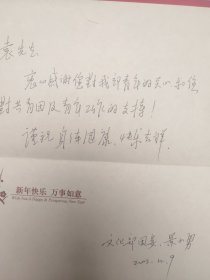 袁先生
衷心感谢您对我部青年的关心和您
对共青团及青年工作的支持！
谨祝身体健康，加乐吉祥
新年快乐 万事如意
Wish You a Happy & Prosperous New Year
文化部团委
2002.12.9